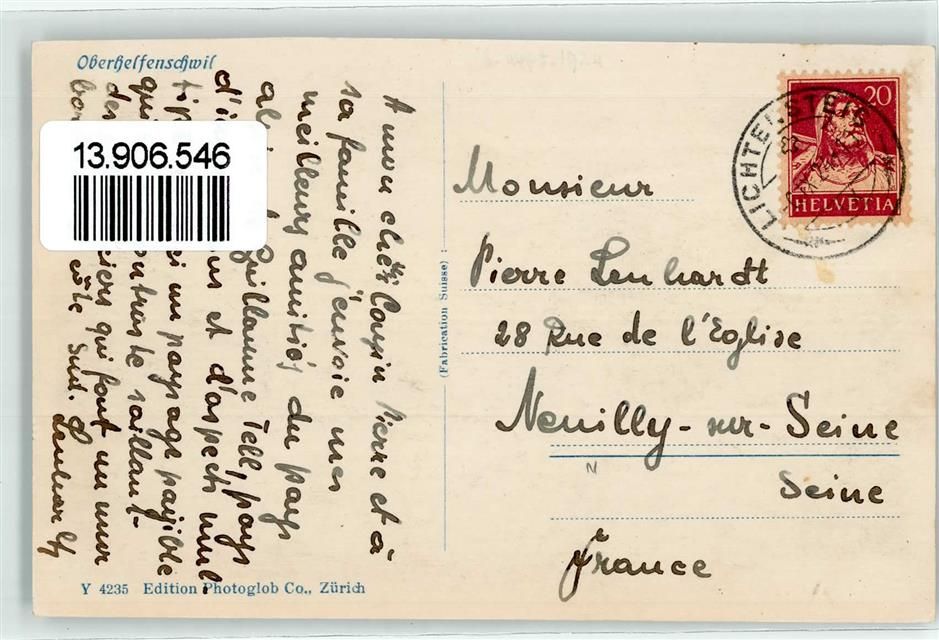 Oberhelfenschwil
A mon cher Cousin Pierre et à
sa famille j'envoie mes
meilleurs amitiés du pays
de Guillaume Tell, pays
d'aspects mul
ti
si un paysage paisible
contraste saillant
des qui font un mur
bor côté Sud.
Lenhardt
13.906.546
(Fabrication Suisse)
20
HELVETIA
LICHTENSTEIG
Monsieur
Pierre Lenhardt
28 Rue de l'Eglise
Neuilly-sur-Seine
Seine
France
Y 4235 Edition Photoglob Co., Zürich